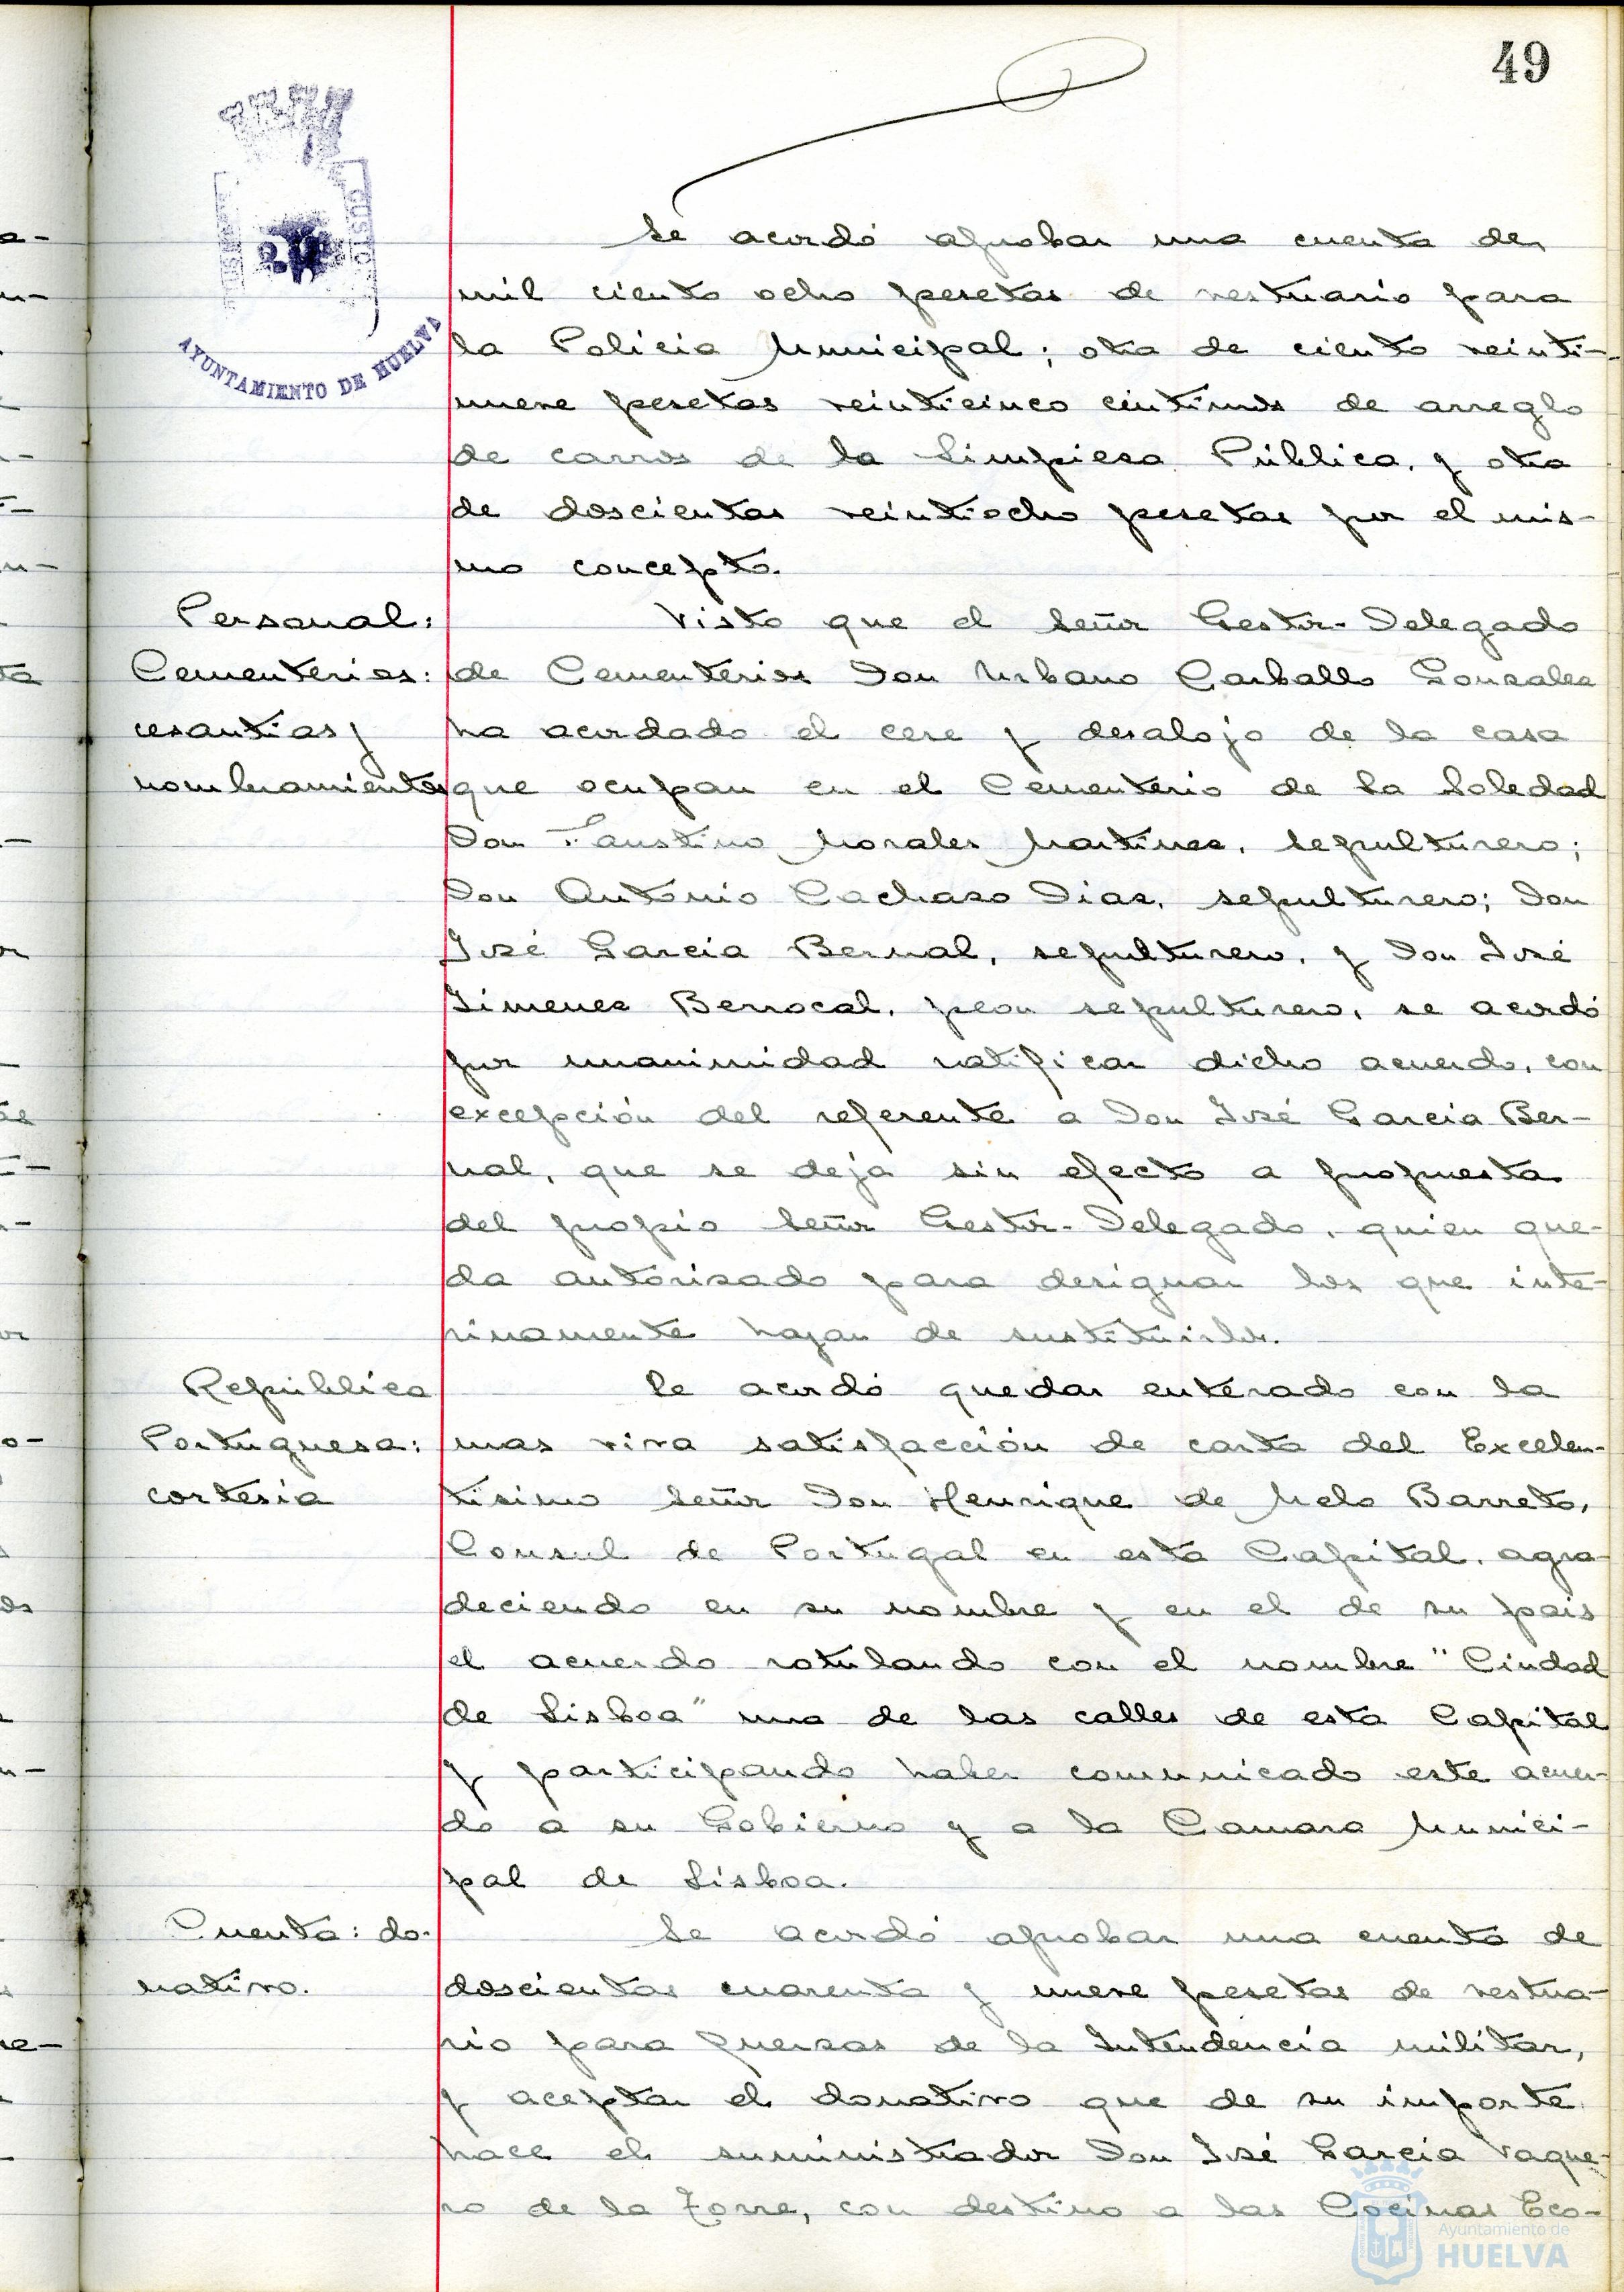 49
AYUNTAMIENTO DE HUELVA
Se acordó aprobar una cuenta de
mil ciento ocho pesetas de vestuario para
la Policia Municipal; otra de ciento veinti-
nueve pesetas veinticinco centimos de arreglo
de carros de la Limpieza Pública, y otra
de doscientas veintiocho pesetas por el mis-
mo concepto.
Personal:
Cementerios:
cesantias y
nombramientos
Visto que el Señor Gestor-Delegado
de Cementerios Don Urbano Carballo Gonzalez
ha acordado el cese y desalojo de la casa
que ocupan en el Cementerio de la Soledad
Don Faustino Morales Martinez, sepulturero;
Don Antonio Cachazo Diaz, sepulturero; Don
José Garcia Bernal, sepulturero, y Don José
Jimenez Berrocal, peon sepulturero, se acordó
por unanimidad ratificar dicho acuerdo, con
excepción del referente a Don José Garcia Ber-
nal, que se deja sin efecto a propuesta
del propio Señor Gestor-Delegado, quien que-
da autorizado para designar los que inte-
rinamente hayan de sustituirlos.
República
Portuguesa:
cortesia
Se acordó quedar enterado con la
mas viva satisfacción de carta del Excelen-
tisimo Señor Don Henrique de Melo Barreto,
Consul de Portugal en esta Capital, agra-
deciendo en su nombre y en el de su pais
el acuerdo rotulando con el nombre "Ciudad
de Lisboa" una de las calles de esta Capital
y participando haber comunicado este acuer-
do a su Gobierno y a la Camara Munici-
pal de Lisboa.
Cuenta: do-
nativo.
Se acordó aprobar una cuenta de
doscientas cuarenta y nueve pesetas de vestua-
rio para fuerzas de la Intendencia militar,
y aceptar el donativo que de su importe
hace el suministrador Don José Garcia Vaque-
ro de la Torre, con destino a las Cocinas Eco-
Ayuntamiento de
HUELVA